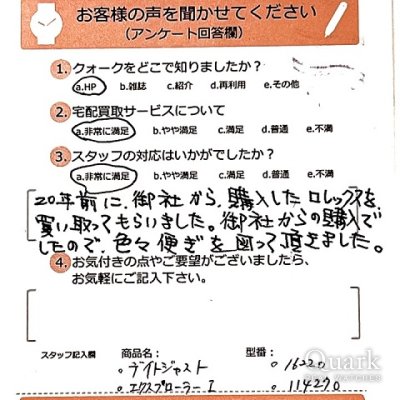 お客様の声を聞かせてください
（アンケート回答欄）
1. クォークをどこで知りましたか？
a.HP b.雑誌 c.紹介 d.再利用 e.その他
2. 宅配買取サービスについて
a.非常に満足 b.やや満足 c.満足 d.普通 e.不満
3. スタッフの対応はいかがでしたか？
a.非常に満足 b.やや満足 c.満足 d.普通 e.不満
20年前に、御社から、購入したロレックスを、
買い取ってもらいました。御社からの購入で
したので、色々便ぎを図って頂きました。
4. お気付きの点やご要望がございましたら、
お気軽にご記入下さい。
スタッフ記入欄 商品名： 型番：
・デイトジャスト ・16220
・エクスプローラーⅠ ・114270
Quark
FINE WATCHES